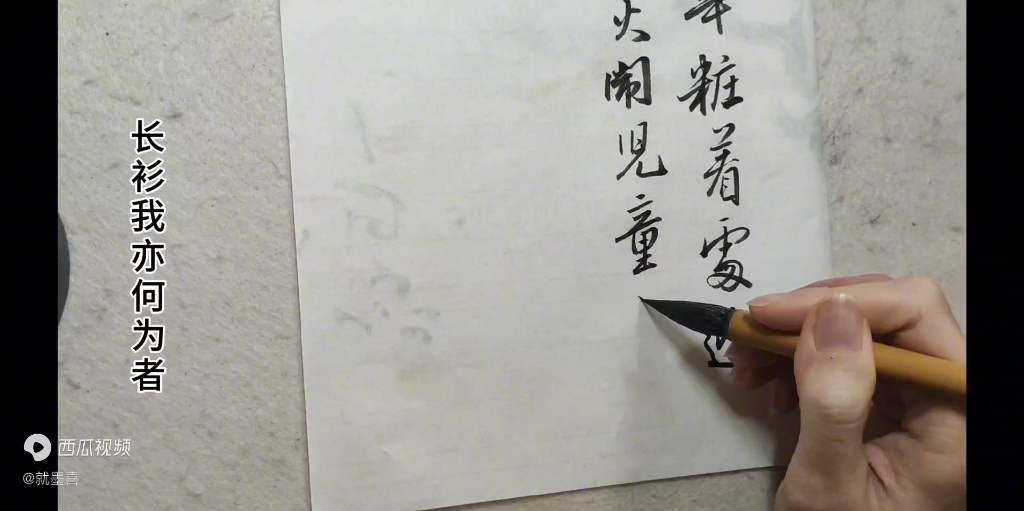 粧着
火闹児童
长衫我亦何为者
西瓜视频
@就墨喜